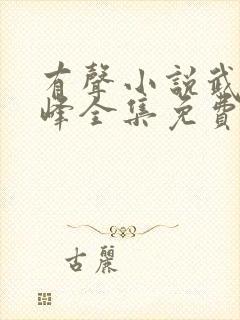 有聲小說武
峰全集免費
古麗